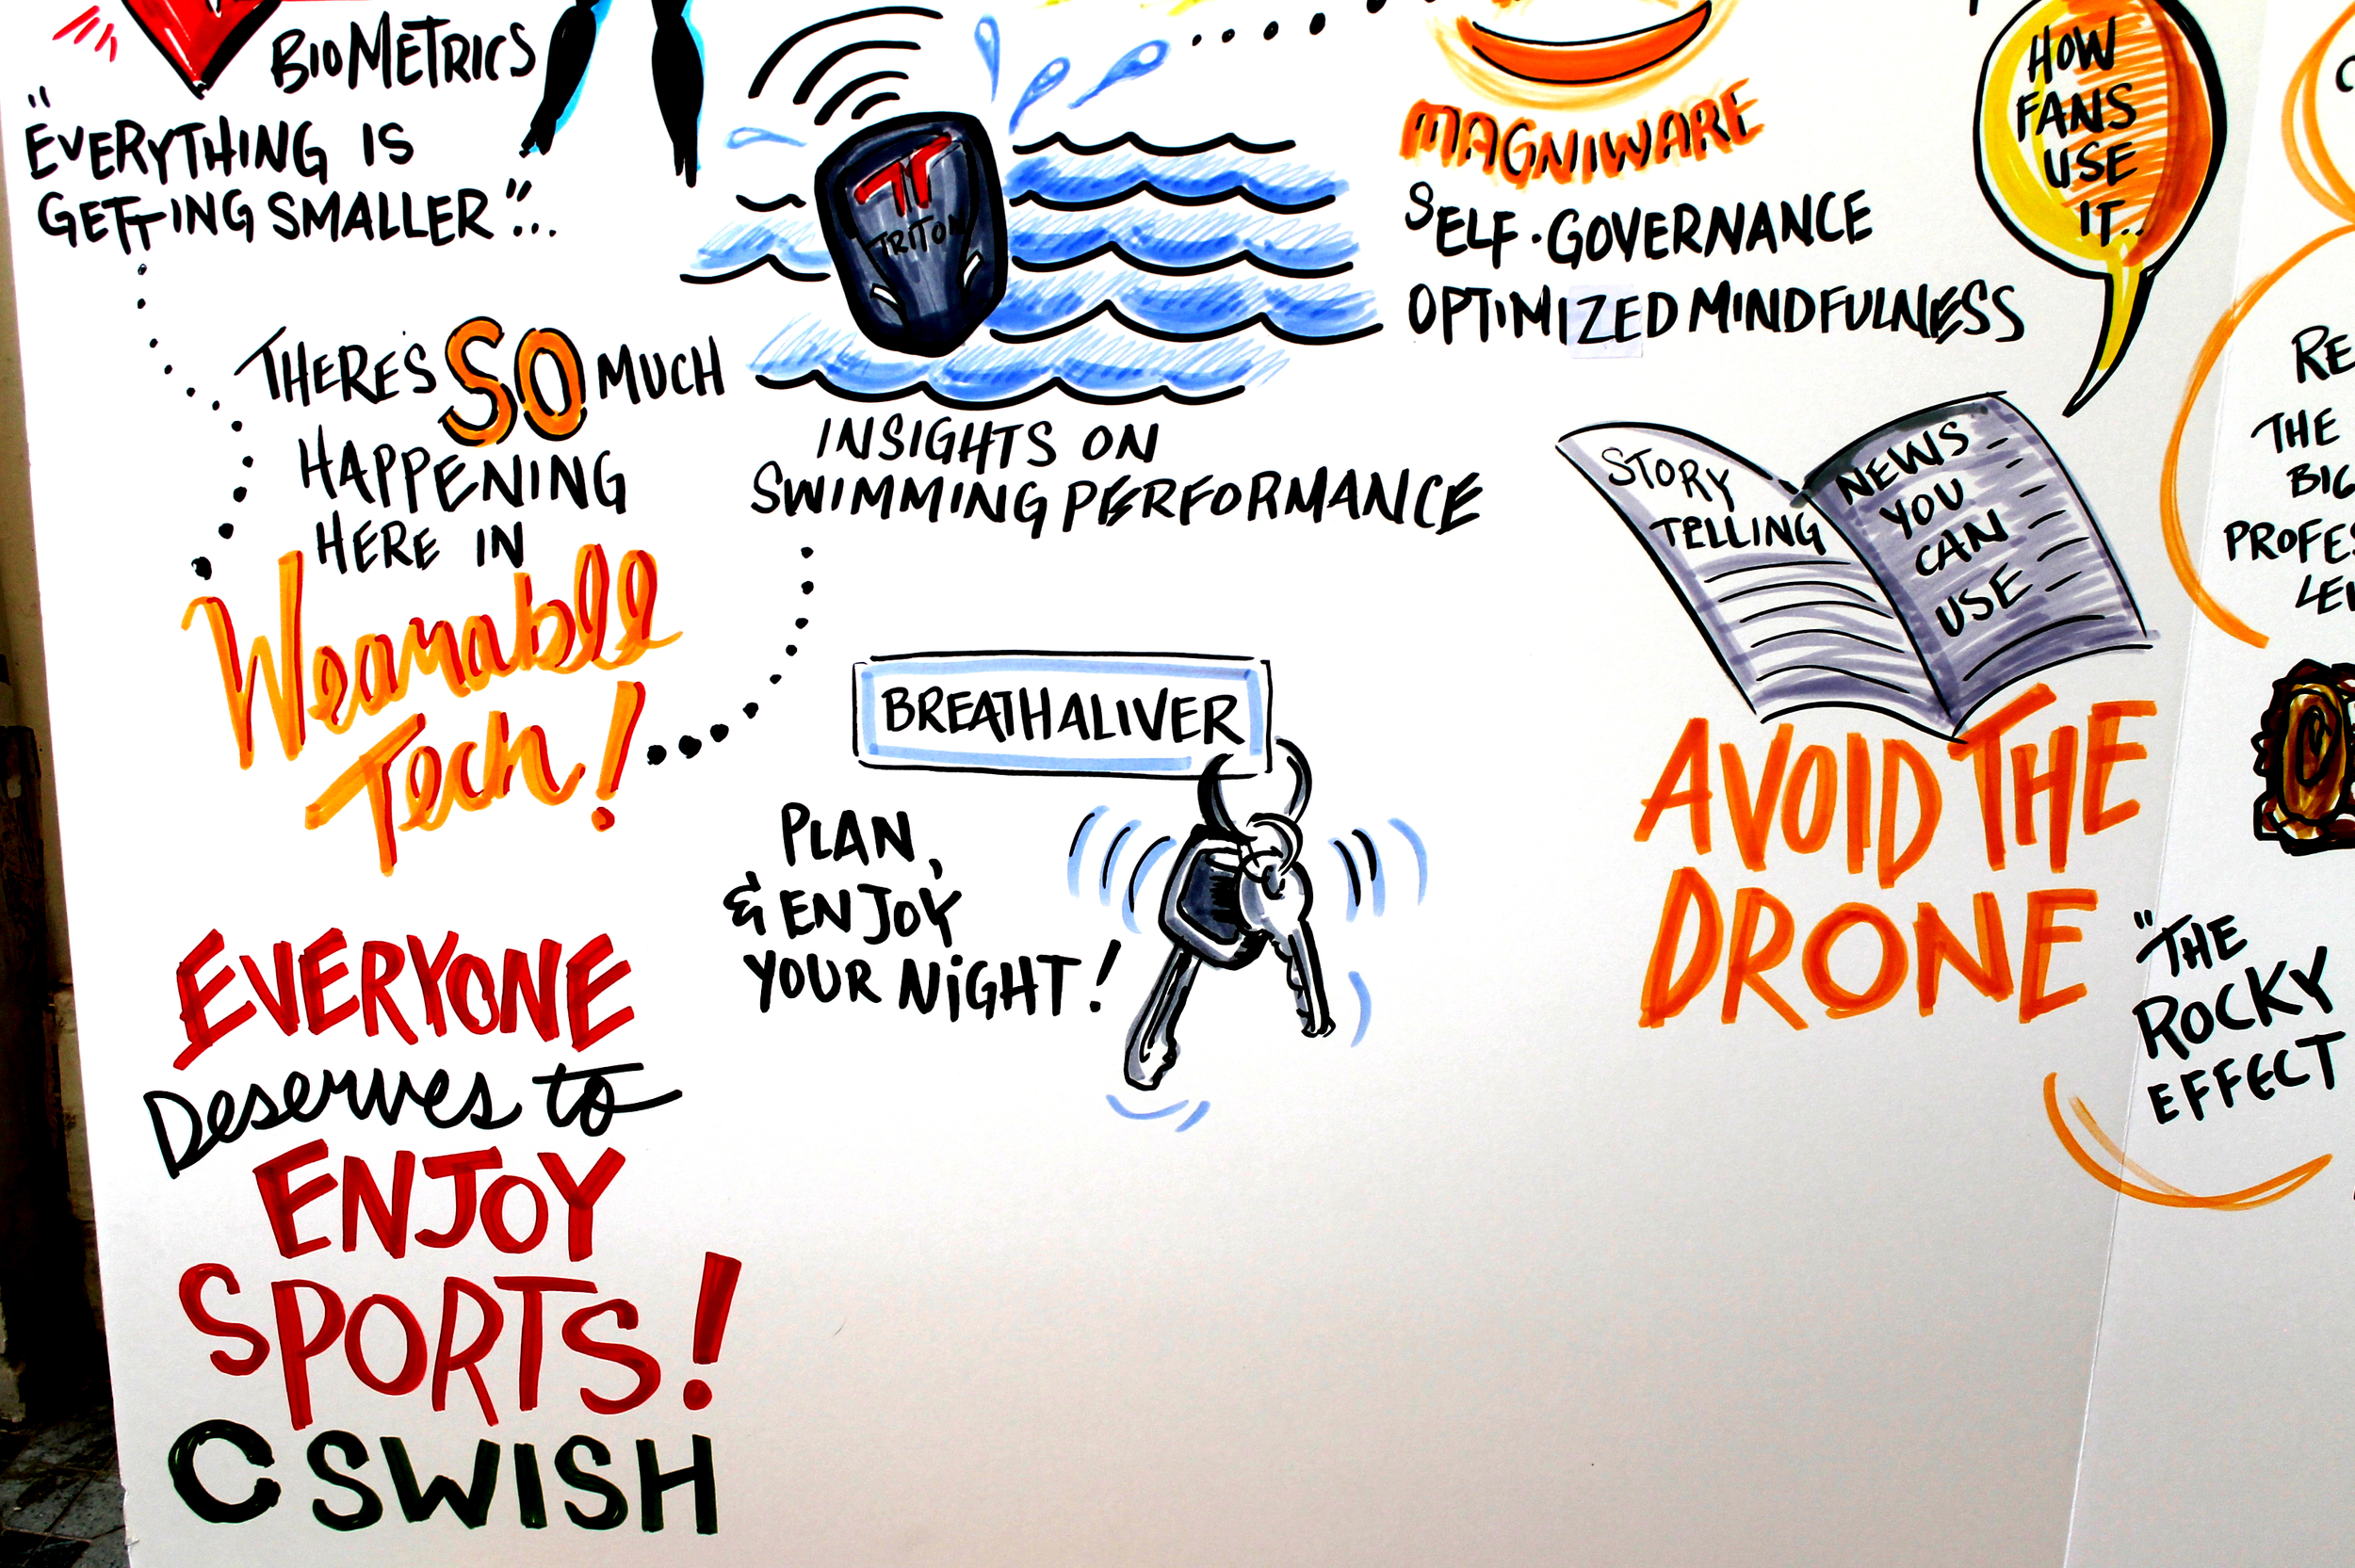 BIOMETRICS
"EVERYTHING IS
GETTING SMALLER"...
THERE'S SO MUCH
HAPPENING
HERE IN
Wearable
Tech!
EVERYONE
Deserves to
ENJOY
SPORTS!
CSWISH
TRITON
INSIGHTS ON
SWIMMING PERFORMANCE
BREATHALIVER
PLAN,
& ENJOY
YOUR NIGHT!
MAGNIWARE
SELF-GOVERNANCE
OPTIMIZED MINDFULNESS
HOW
FANS
USE
IT..
STORY
TELLING
NEWS
YOU
CAN
USE
AVOID THE
DRONE
"THE
ROCKY
EFFECT
THE